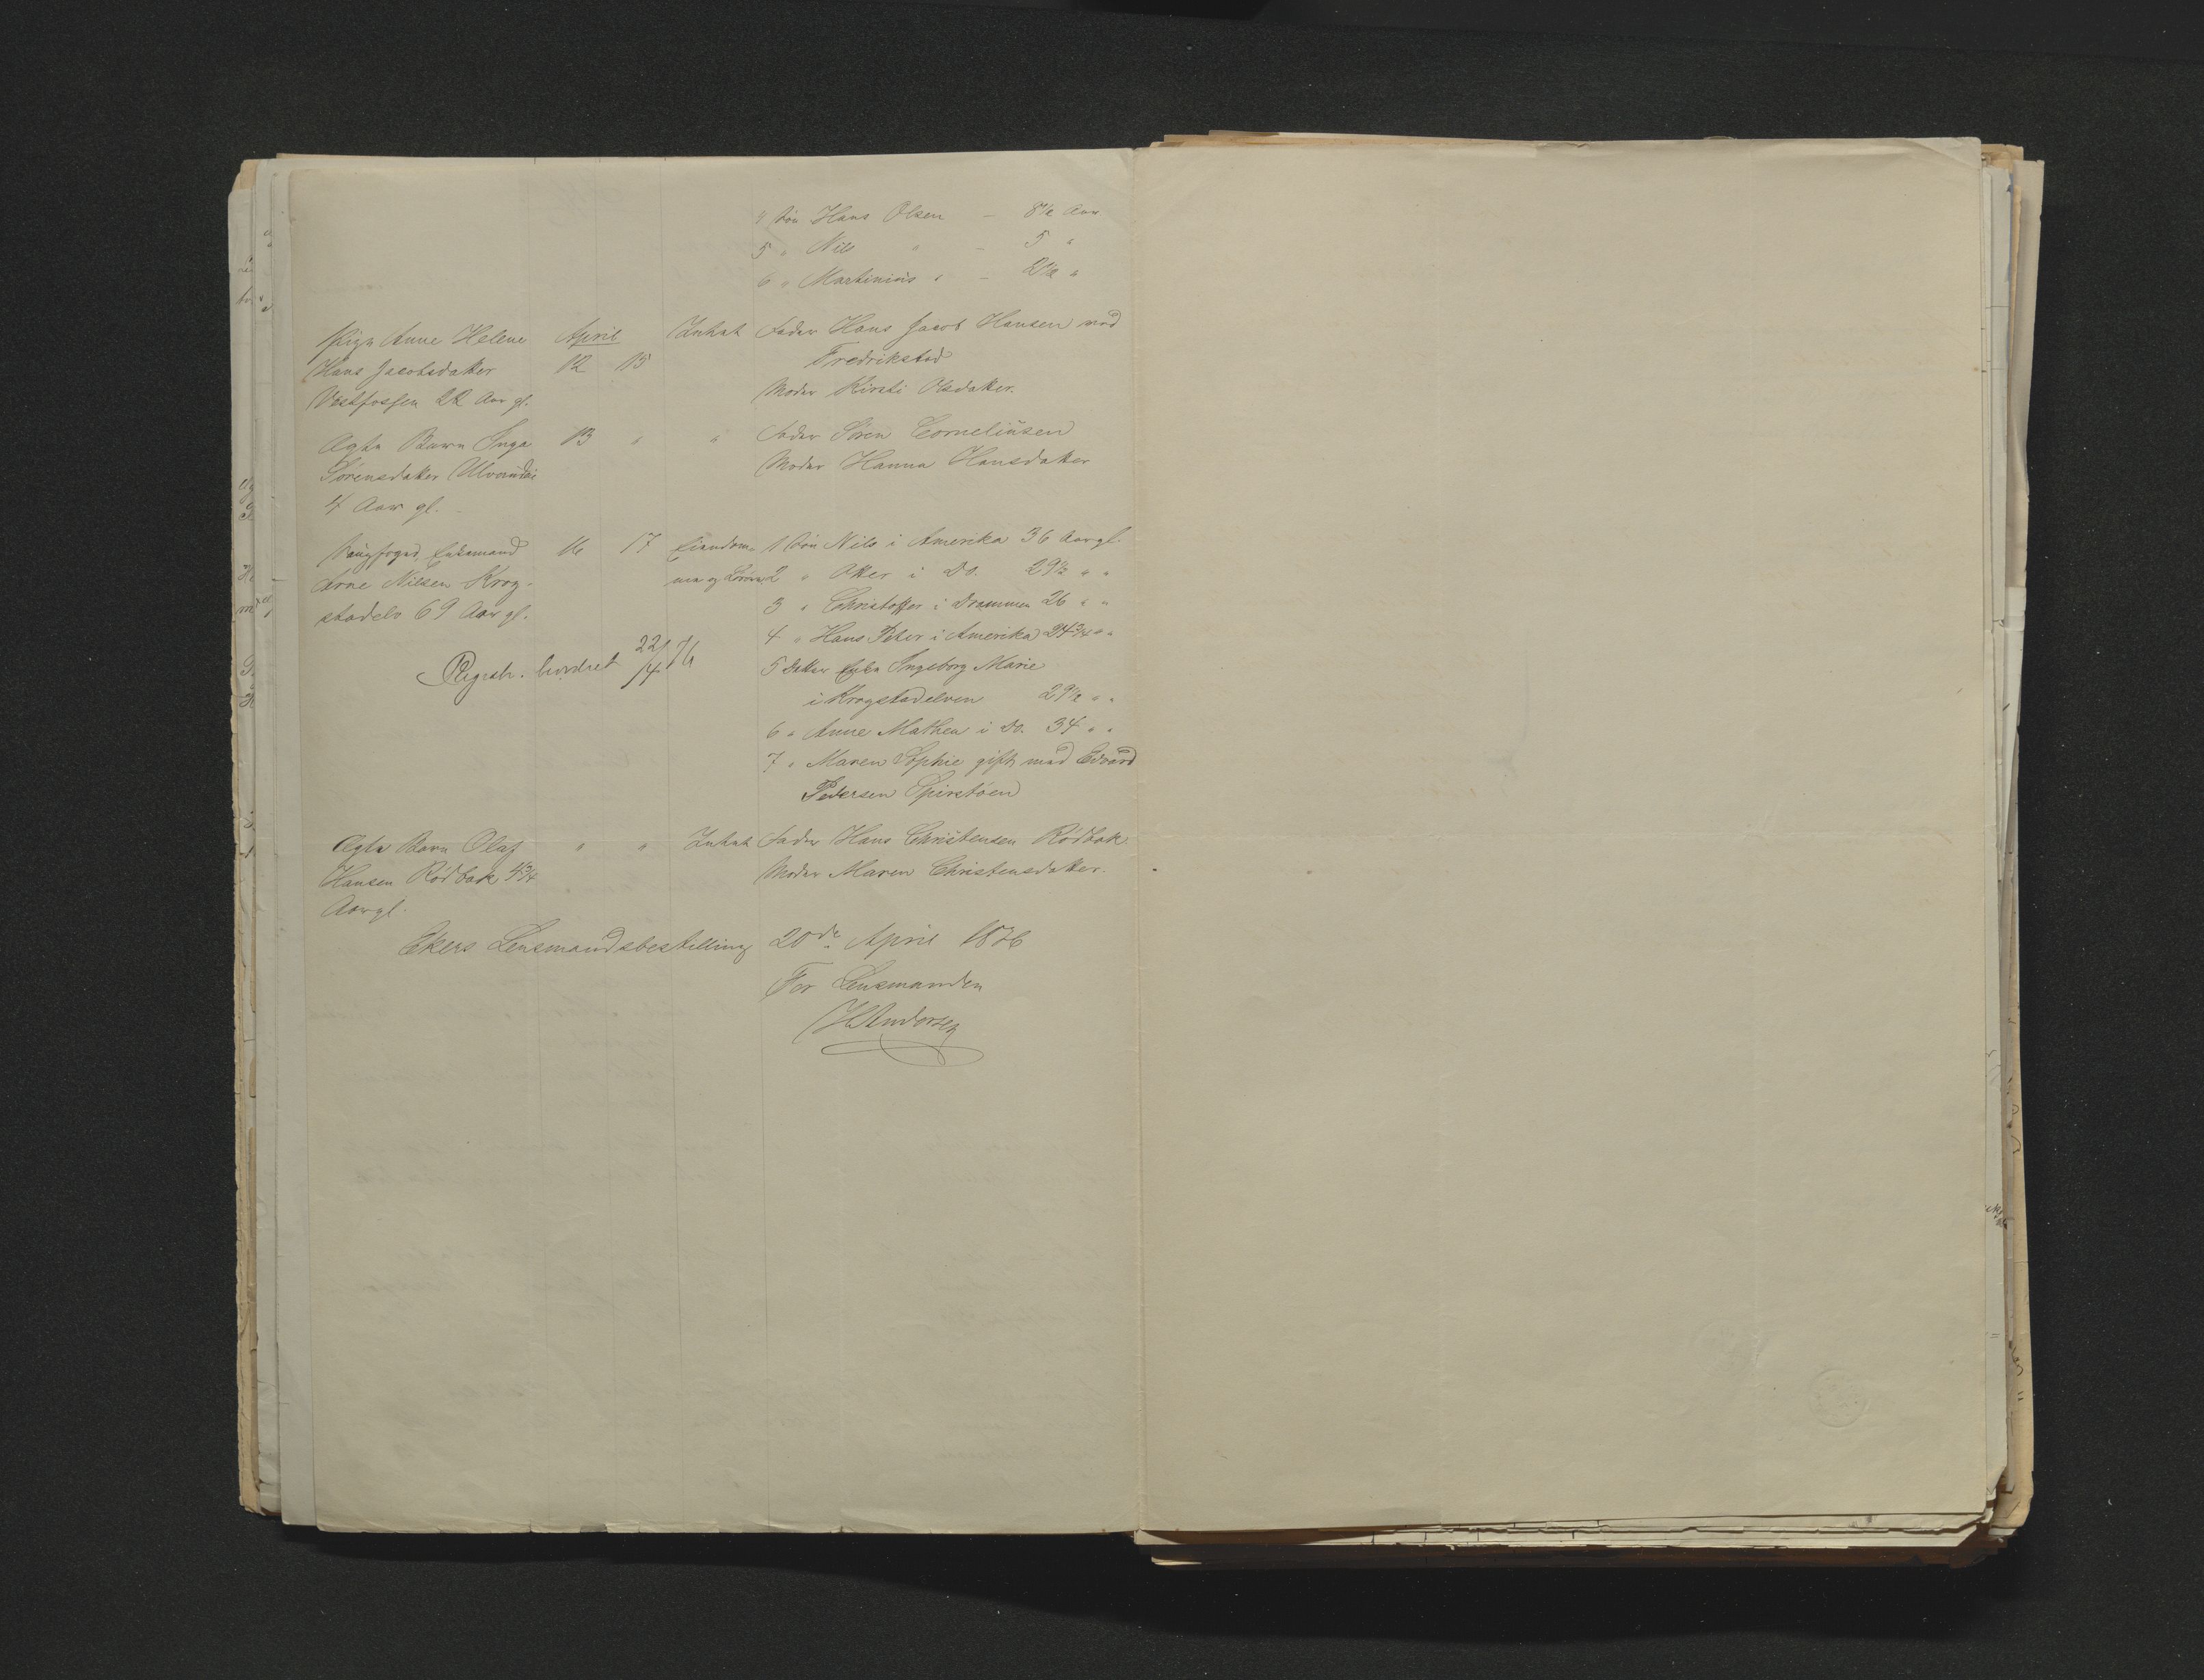 4 Søn Hans Olsen – 8½ Aar
5 " Nils " – 5 "
6 " Martinius " – 2½ "
Pige Anne Helene April Intet Fader Hans Jacob Hansen ved
Hans Jacobsdatter 12 15 Fredrikstad
Vestfossen 22 Aar gl. Moder Kirsti Olsdatter.
Ægte Barn Inga 13 " " Fader Søren Corneliusen
Sørensdatter Moder Hanna Hansdatter
4 Aar gl.
Enkemand 16 17 Eiendom- 1 Søn Nils i Amerika 36 Aar gl.
Arne Nilsen Krog- men og Løsøre 2 " Otter i Do. 29½ " "
stadelv 69 Aar gl. 3 " Christoffer i Drammen 26 " "
4 " Hans Peter i Amerika 24¾ " "
Registr. 22/4 76 5 Datter Enke Ingeborg Marie
i Krogstadelven 29½ " "
6 " Anne Mathea i Do. 34 " "
7 " Maren Sophie gift med Edvard
Pedersen Spirstøen
Ægte Barn Olaf " " Intet Fader Hans Christensen Rødbak
Hansen Rødbak 4¾ Moder Maren Christensdatter.
Aar gl.
Ekers Lensmandsbestilling 20de April 1876
For Lensmanden
H. Andersen